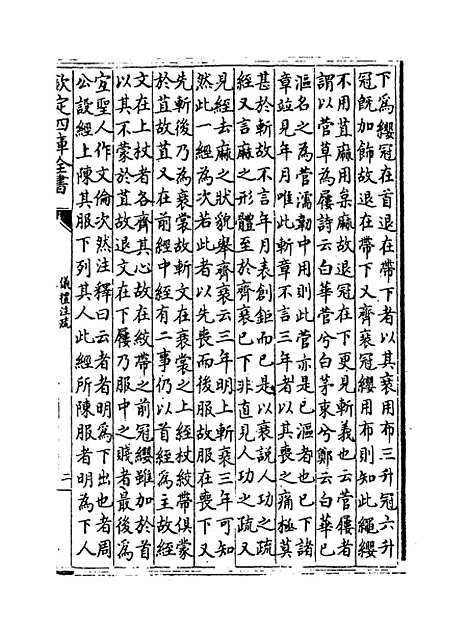 下為纓冠在首退在帶下者以其衰用布三升冠六升
冠既加飾故退在帶下又齊衰冠纓用布則知此繩纓
不用苴麻用枲麻故退冠在下更見斬義也云菅屨者
謂以菅草為屨詩云白華菅兮白茅束兮鄭云白華已
漚名之為菅濡韌中用則此菅亦是已漚者也已下諸
章竝見年月唯此斬章不言三年者以其喪之痛極莫
甚於斬故不言年月表創鉅而已是以衰說人功之疏
絰又言麻之形體至於齊衰已下非直見人功之疏又
見絰去麻之狀貌舉齊衰云三年明上斬衰三年可知
然此一經為次若此者以先喪而後服故服在喪下又
先斬後乃為衰裳故斬文在衰裳之上絰杖絞帶俱蒙
於苴故苴又在前經中絰有二事仍以首絰為主故絰
文在上杖者各齊其心故在絞帶之前冠纓雖加於首
以其不蒙於苴故退文在下屨乃服中之賤者最後為
宜聖人作文倫次然注釋曰云者者明為下出也者周
公設經上陳其服下列其人此經所陳服者明為下人
欽定四庫全書
儀禮注疏
二